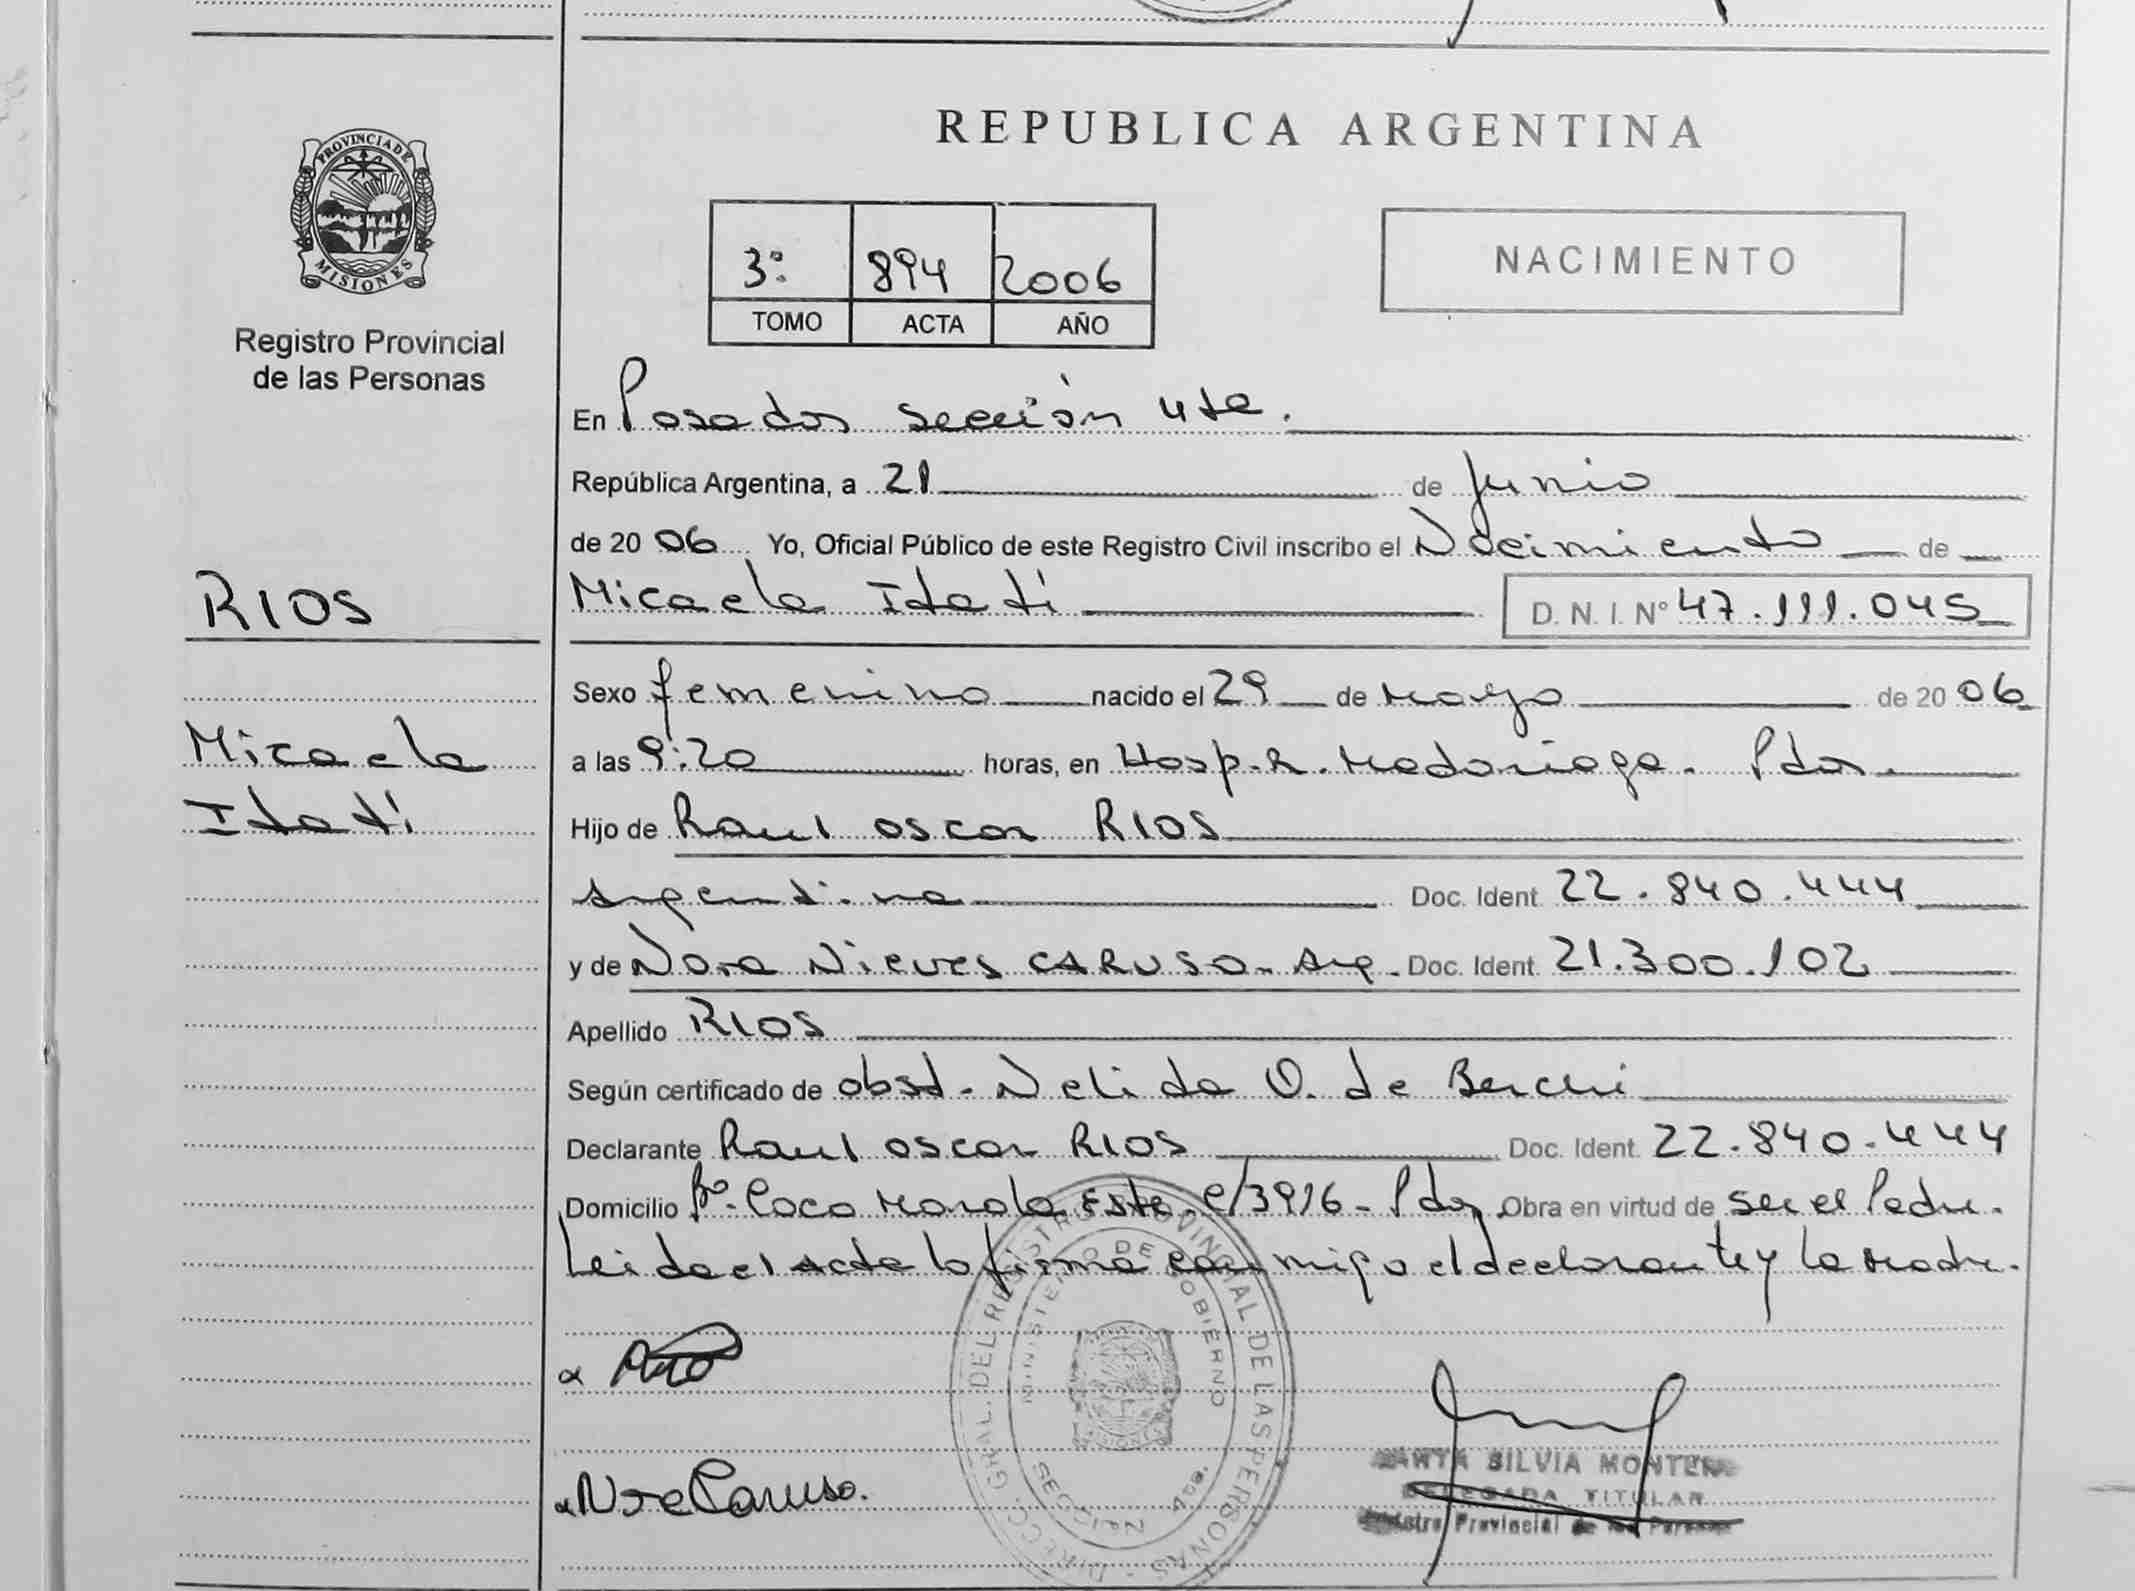 PROVINCIA DE
MISIONES
Registro Provincial
de las Personas
RIOS
Micaela
Itatí
REPUBLICA ARGENTINA
3º 894 2006
TOMO ACTA AÑO
NACIMIENTO
En Posadas sección 4ta.
República Argentina, a 21 de Junio
de 2006 Yo, Oficial Público de este Registro Civil inscribo el Nacimiento de
Micaela Itatí D. N. I. Nº 47.111.045
Sexo femenino nacido el 29 de Mayo de 2006
a las 9:20 horas, en Hosp. R. Madariaga. Pdas.
Hijo de Raul Oscar RIOS
Argentina Doc. Ident. 22.840.444
y de Nora Nieves CARUSO - Arg. Doc. Ident. 21.300.102
Apellido RIOS
Según certificado de obst. Nelida O. de
Declarante Raul Oscar RIOS Doc. Ident. 22.840.444
Domicilio Bº. Cocomarola Este. C/3916 - Pdas Obra en virtud de ser el Padre.
Leida el Acta la firma conmigo el declarante y la Madre.
DIRECC. GRAL. DEL REGISTRO PROVINCIAL DE LAS PERSONAS
MINISTERIO DE GOBIERNO
SECCION 4ta.
a
a Nora Caruso.
SILVIA
DELEGADA TITULAR
Registro Provincial de las Personas